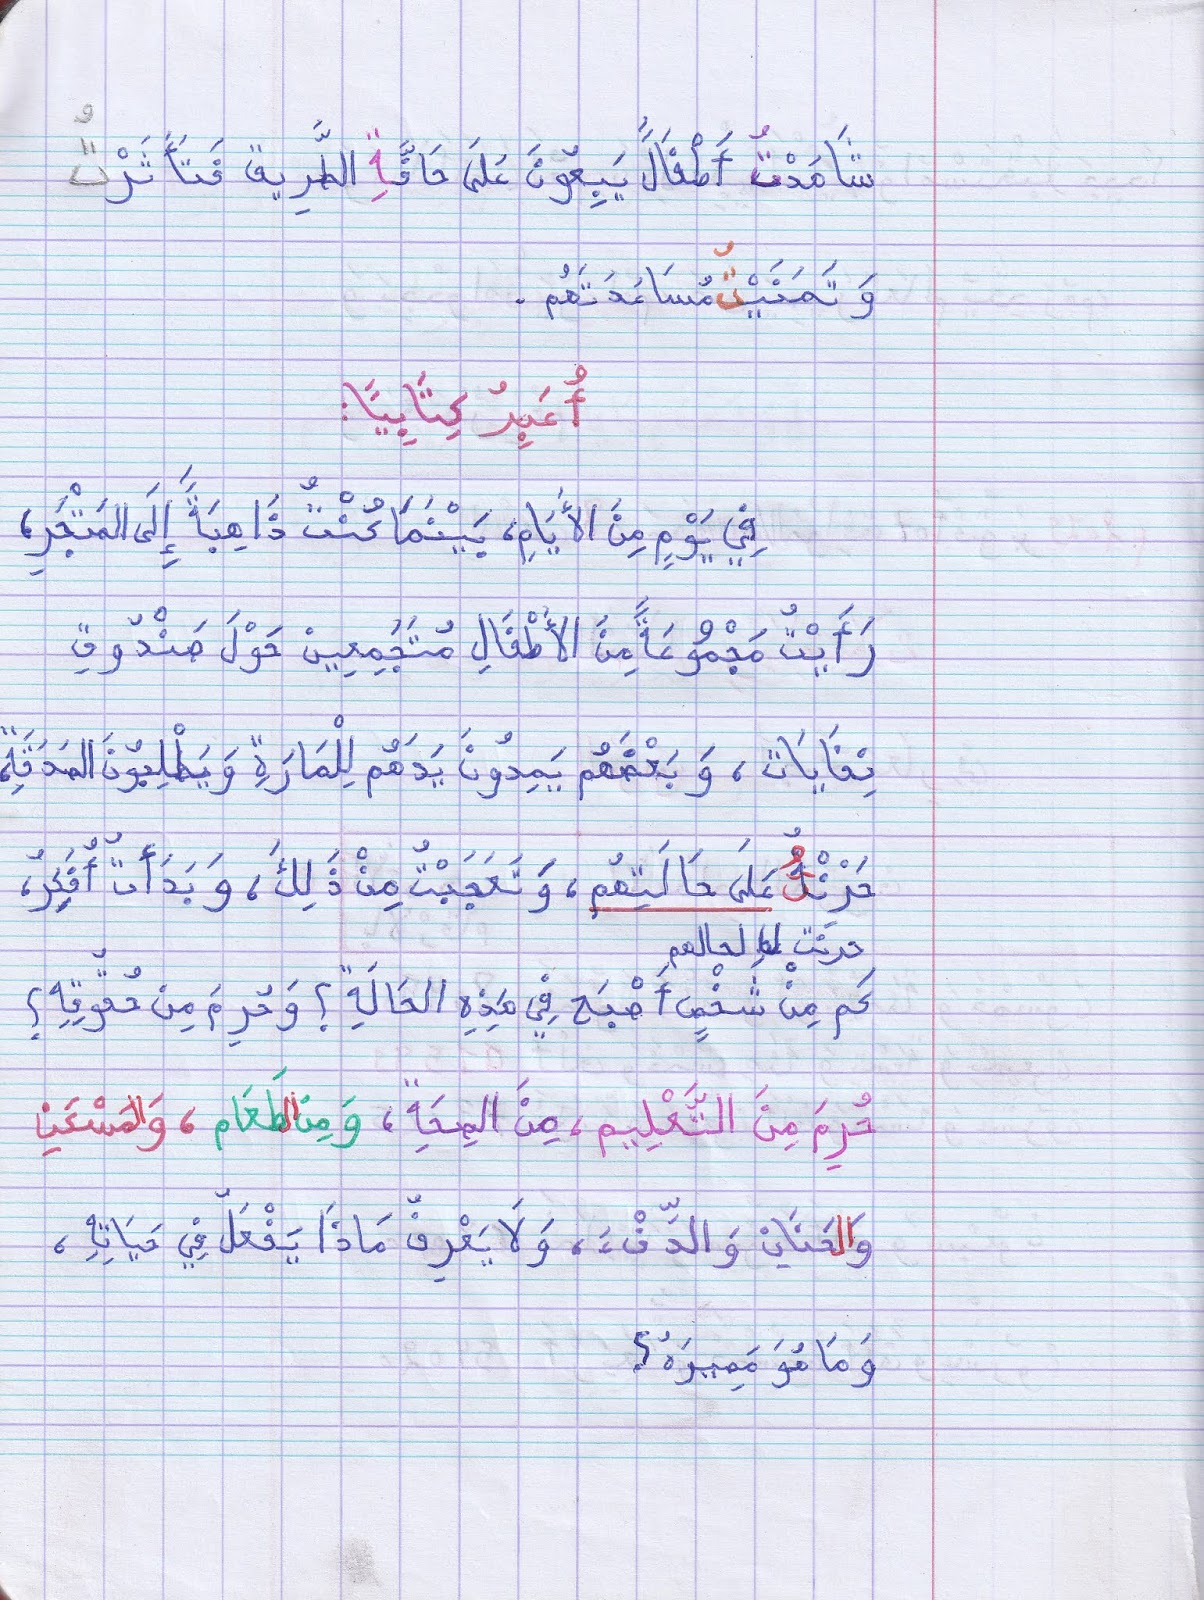 شَاهَدْتُ أَطْفَالً يَبِعُونَ عَلَى حَافَّةِ الطَّرِيق فَتَأَثَرْتُ
وَتَمَنَيْتُ مُسَاعَدَتَهُم .
أُعَبِرُ كِتَابِيًا:
فِي يَوْمٍ مِنَ الأَيَامِ، بَيْنَمَا كُنْتُ ذَاهِبَةً إِلَى المَتْجَرِ،
رَأَيْتُ مَجْمُوعَةً مِنَ الأَطْفَالِ مُتَجَمِعِينَ حَوْلَ صَنْدُوقِ
نِفَايَات، وَبَعْضَهُم يَمِدُونَ يَدَهُم لِلْمَارَةِ وَيَطْلِبُونَ الصَدَقَةِ،
حَزِنْتُ عَلَى حَالَتِهُم، وَتَعَجَبْتُ مِنْ ذَلِكَ، وَبَدَأتُ أُفَكِرُ،
حزنت لحالهم
كَم مِنْ شَخْصٍ أَصْبَح فِي هَذِهِ الحَالَةِ؟ وَحُرِمَ مِن حُقُوقِهِ؟
حُرِمَ مِنَ التَّعْلِيم، مِنَ الصِحَةِ، وَمِنَ الطَعَام، وَالمَسْكَن
وَالحَنَان وَالدِّفْء، وَلَا يَعْرِفُ مَاذَا يَفْعَلُ فِي حَيَاتِهِ،
وَمَا هُوَ مَصِيرَهُ؟